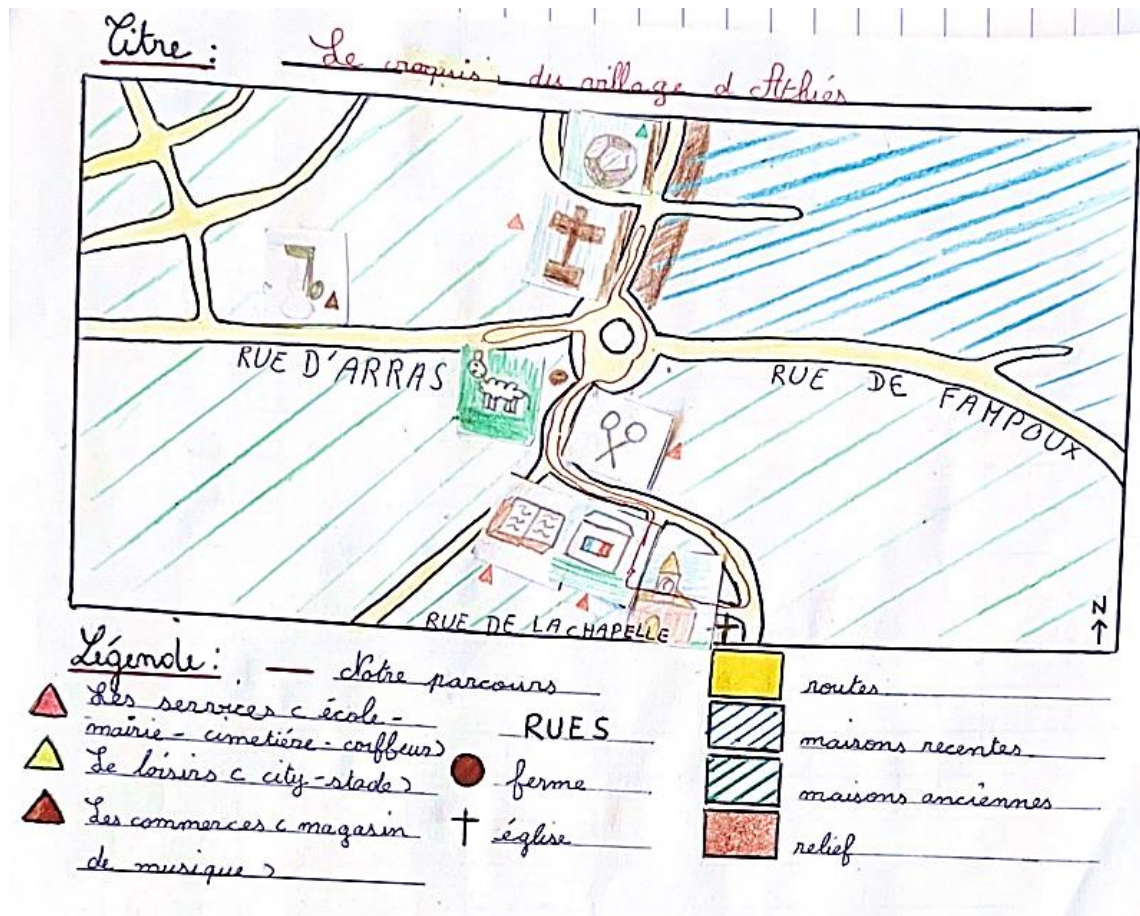 Titre :
Le croquis du village d Athiés
RUE D'ARRAS
RUE DE FAMPOUX
RUE DE LA CHAPELLE
N
Légende :
Notre parcours
Les services ( école -
mairie - cimetière - coiffeur)
Le loisirs ( city-stade )
Les commerces ( magasin
de musique )
RUES
ferme
église
routes
maisons recentes
maisons anciènnes
relief